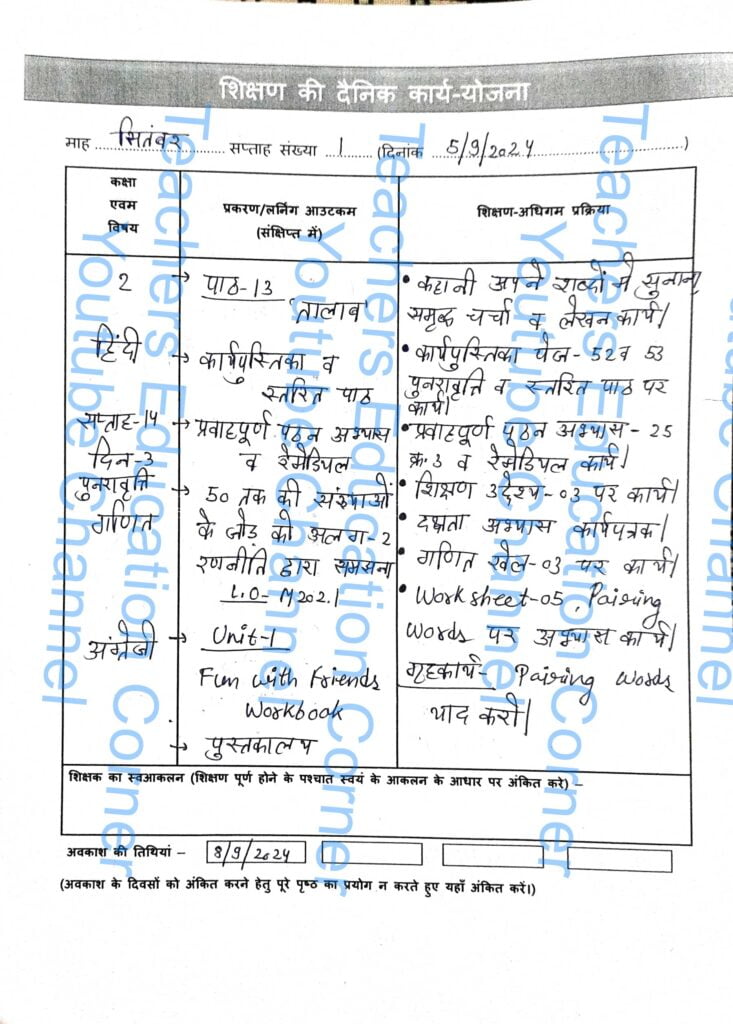 शिक्षण की दैनिक कार्य-योजना
माह सितंबर सप्ताह संख्या 1 (दिनांक 5/9/2024)
कक्षा
एवम
विषय
प्रकरण/लर्निग आउटकम
(संक्षिप्त में)
शिक्षण-अधिगम प्रक्रिया
2
हिंदी
सप्ताह-14
दिन-3
पुनरावृत्ति
गणित
अंग्रेजी
→ पाठ-13
'तालाब'
→ कार्यपुस्तिका व
स्तरित पाठ
→ प्रवाहपूर्ण पठन अभ्यास
व रेमेडियल
→ 50 तक की संख्याओं
के जोड़ को अलग-2
रणनीति द्वारा समझना
L.O- M202.1
→ Unit-1
Fun with Friends
Workbook
→ पुस्तकालय
• कहानी अपने शब्दों में सुनाना
समृद्ध चर्चा व लेखन कार्य।
• कार्यपुस्तिका पेज- 52 व 53
पुनरावृत्ति व स्तरित पाठ पर
कार्य।
• प्रवाहपूर्ण पठन अभ्यास- 25
क्र. 3 व रेमेडियल कार्य।
• शिक्षण उद्देश्य-03 पर कार्य।
• दक्षता अभ्यास कार्यपत्रक।
• गणित खेल-03 पर कार्य।
• Worksheet-05, Pairing
Words पर अभ्यास कार्य।
गृहकार्य- Pairing words
याद करो।
शिक्षक का स्वआकलन (शिक्षण पूर्ण होने के पश्चात स्वयं के आकलन के आधार पर अंकित करे) –
अवकाश की तिथियां – 8/9/2024
(अवकाश के दिवसों को अंकित करने हेतु पूरे पृष्ठ का प्रयोग न करते हुए यहाँ अंकित करें।)
Teachers Education Corner
Youtube Channel
Teachers Education Corner
Youtube Channel
Teachers Education Corner
Youtube Channel